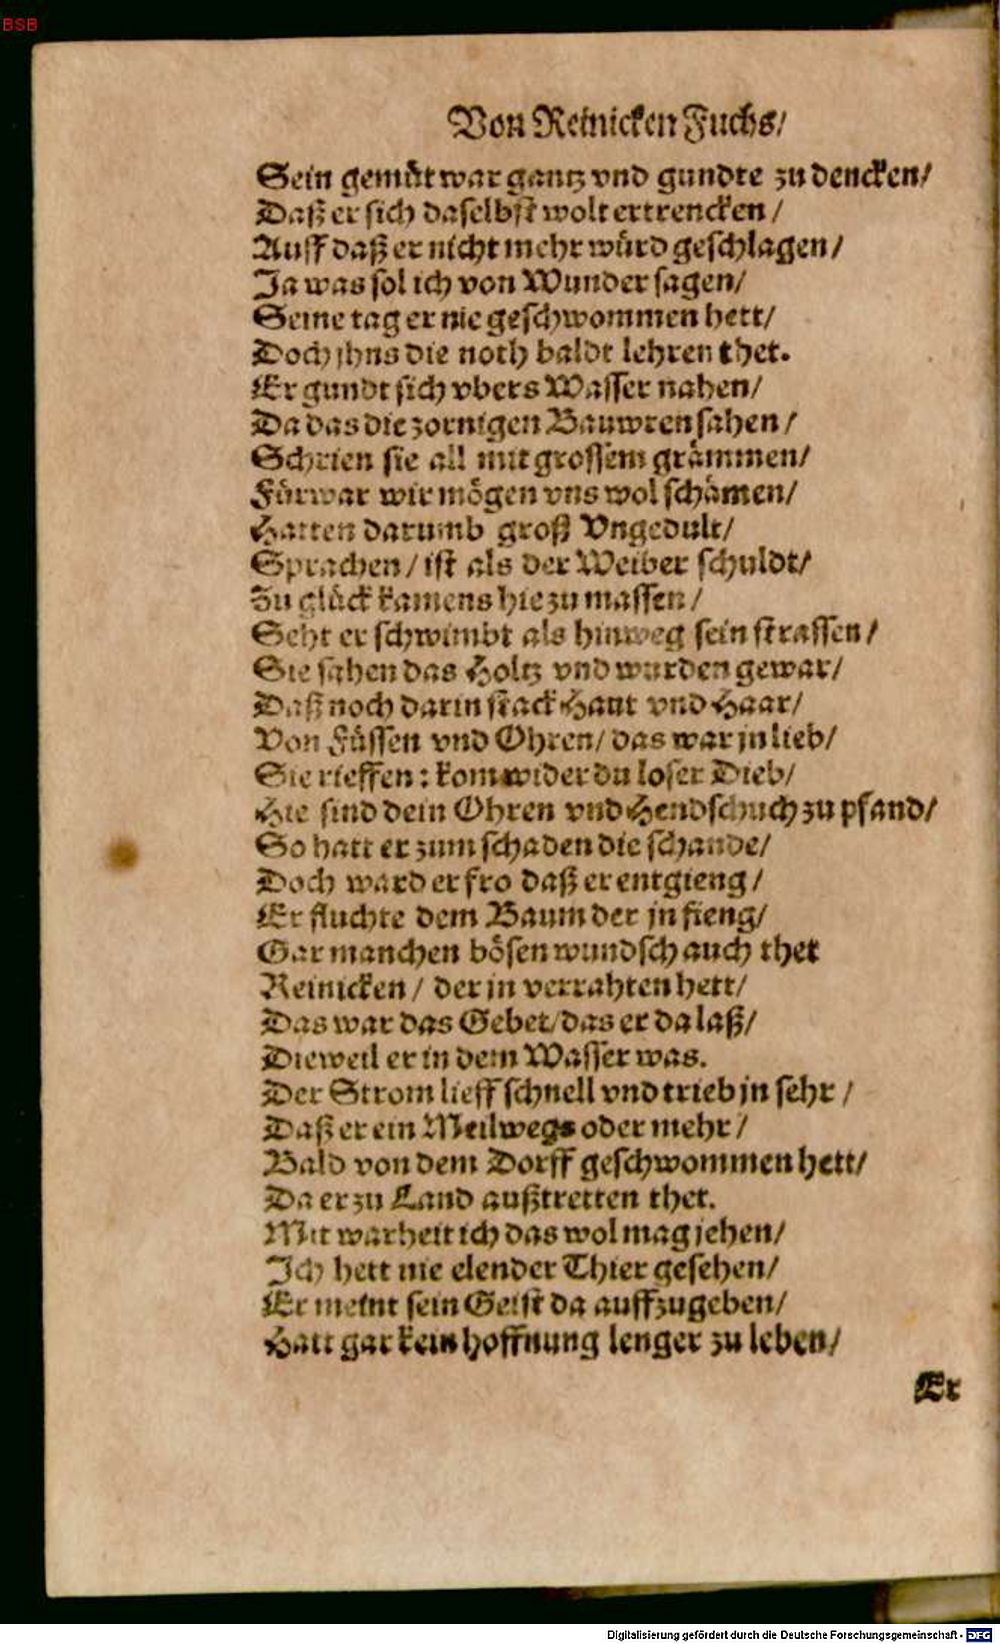 BSB
Von Reinicken Fuchs/
Sein gemüt war gantz vnd gundte zu dencken/
Daß er sich daselbst wolt ertrencken /
Auff daß er nicht mehr würd geschlagen/
Ja was sol ich von Wunder sagen/
Seine tag er nie geschwommen hett/
Doch jhns die noth baldt lehren thet.
Er gundt sich vbers Wasser nahen/
Da das die zornigen Bauwren sahen /
Schrien sie all mit grossem grämmen/
Fürwar wir mögen vns wol schämen/
Hatten darumb groß Vngedult/
Sprachen / ist als der Weiber schuldt/
Zu glück kamens hie zu massen /
Seht er schwimbt als hinweg sein strassen /
Sie sahen das Holtz vnd wurden gewar/
Daß noch darin stack Haut vnd Haar/
Von Füssen vnd Ohren/ das war jn lieb/
Sie rieffen : kom wider du loser Dieb/
Hie sind dein Ohren vnd Hendschuch zu pfand/
So hatt er zum schaden die schande/
Doch ward er fro daß er entgieng /
Er fluchte dem Baum der jn fieng/
Gar manchen bösen wundsch auch thet
Reinicken / der jn verrahten hett/
Das war das Gebet/das er da laß/
Dieweil er in dem Wasser was.
Der Strom lieff schnell vnd trieb jn sehr /
Daß er ein Meilwegs oder mehr /
Bald von dem Dorff geschwommen hett/
Da er zu Land außtretten thet.
Mit warheit ich das wol mag jehen/
Ich hett nie elender Thier gesehen/
Er meint sein Geist da auffzugeben/
Hatt gar kein hoffnung lenger zu leben/
Er
Digitalisierung gefördert durch die Deutsche Forschungsgemeinschaft - DFG